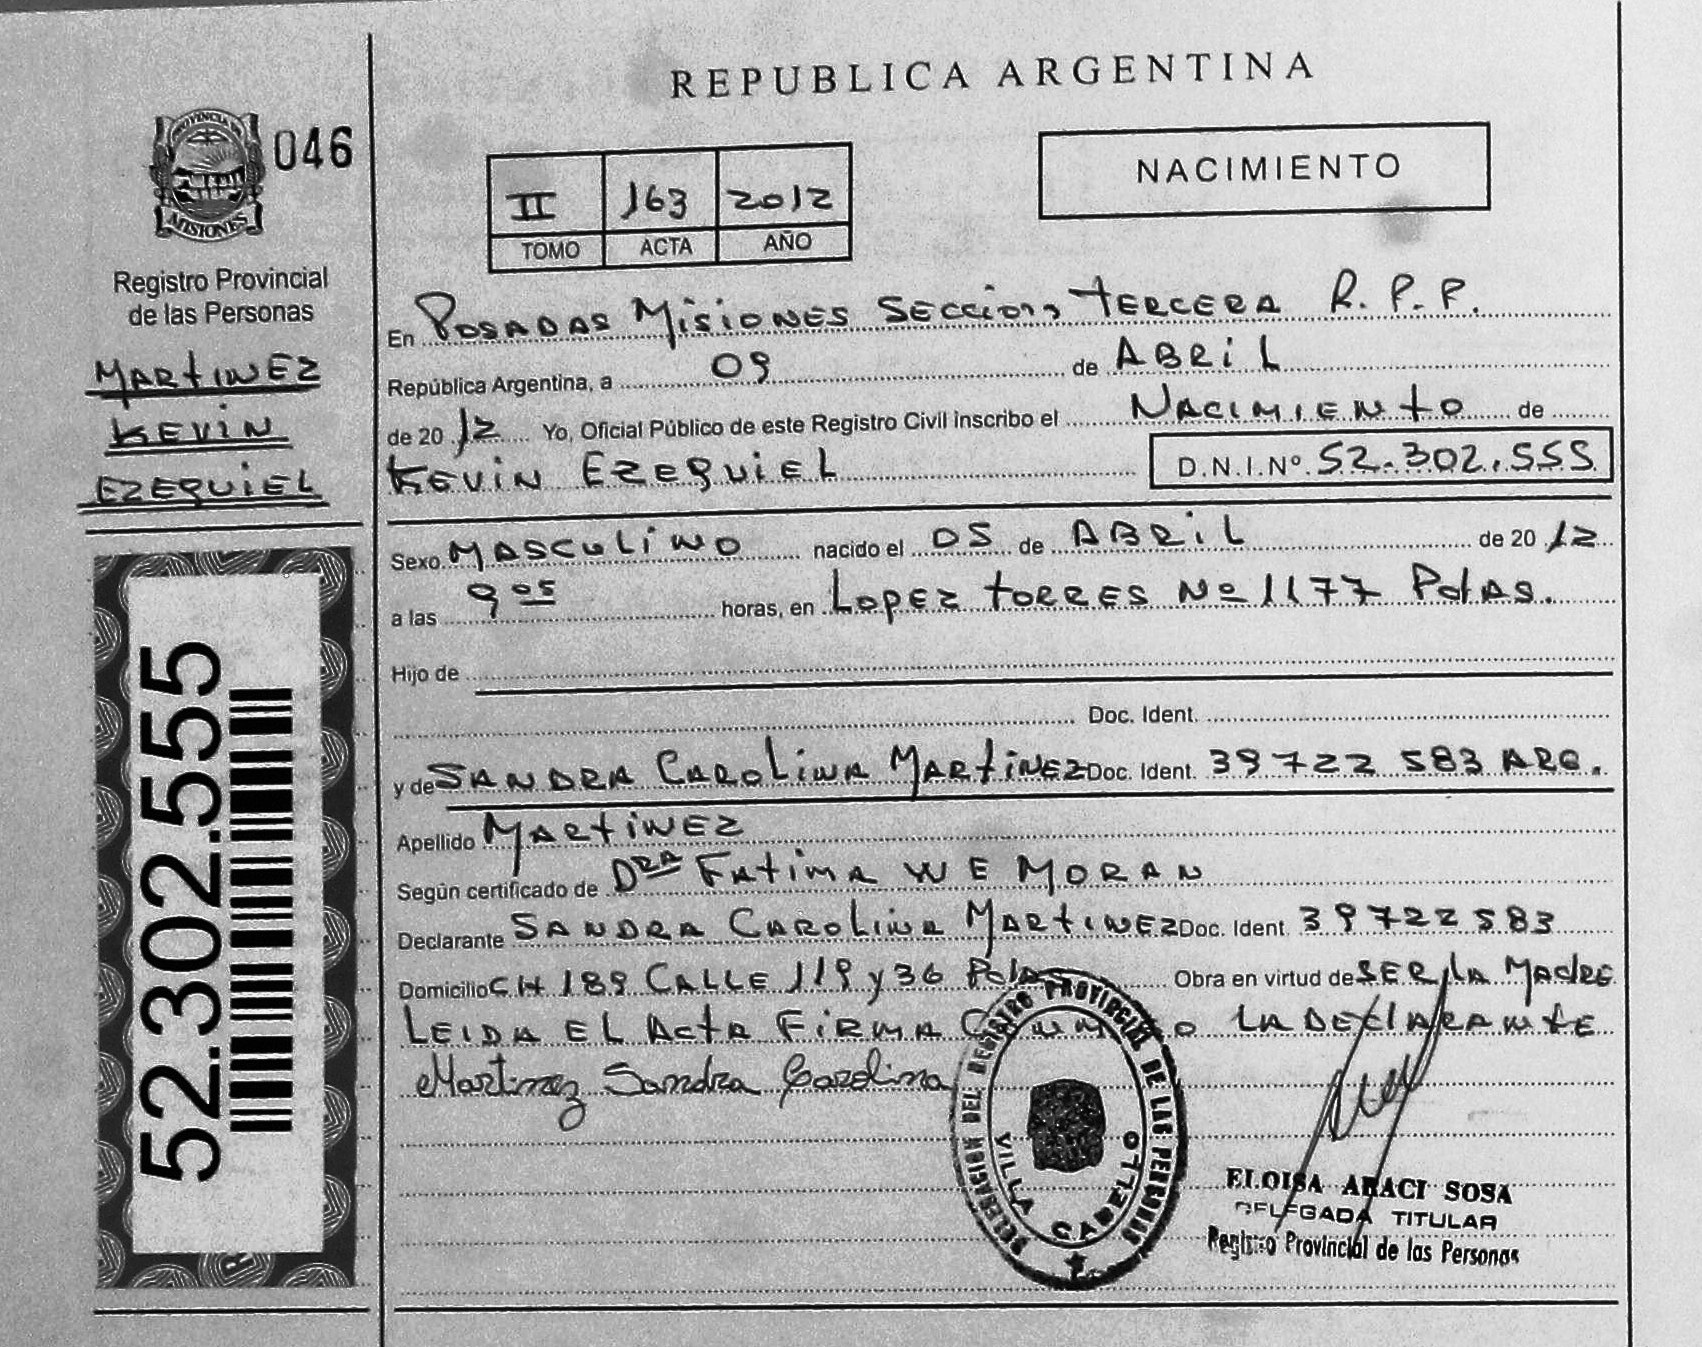 REPUBLICA ARGENTINA
PROVINCIA DE
MISIONES
046
Registro Provincial
de las Personas
MARTINEZ
KEVIN
EZEQUIEL
II 163 2012
TOMO ACTA AÑO
NACIMIENTO
En POSADAS MISIONES SECCION TERCERA R.P.P.
República Argentina, a 09 de ABRIL
de 2012 Yo, Oficial Público de este Registro Civil inscribo el NACIMIENTO de
KEVIN EZEQUIEL D.N.I.Nº 52.302.555
Sexo MASCULINO nacido el 05 de ABRIL de 2012
a las 9 05 horas, en LOPEZ TORRES Nº 1177 PdAS.
Hijo de
Doc. Ident.
y de SANDRA CAROLINA MARTINEZ Doc. Ident. 39722583 ARG.
Apellido MARTINEZ
Según certificado de DRA FATIMA WE MORAN
Declarante SANDRA CAROLINA MARTINEZ Doc. Ident. 39722583
Domicilio CH 189 CALLE 119 y 36 PdAs Obra en virtud de SER LA MADRE
LEIDA EL ACTA FIRMA LA DECLARANTE
Martinez Sandra Carolina
DELEGACION DEL REGISTRO PROVINCIAL DE LAS PERSONAS
VILLA CABELLO
ELOISA ARACI SOSA
DELEGADA TITULAR
Registro Provincial de las Personas
52.302.555